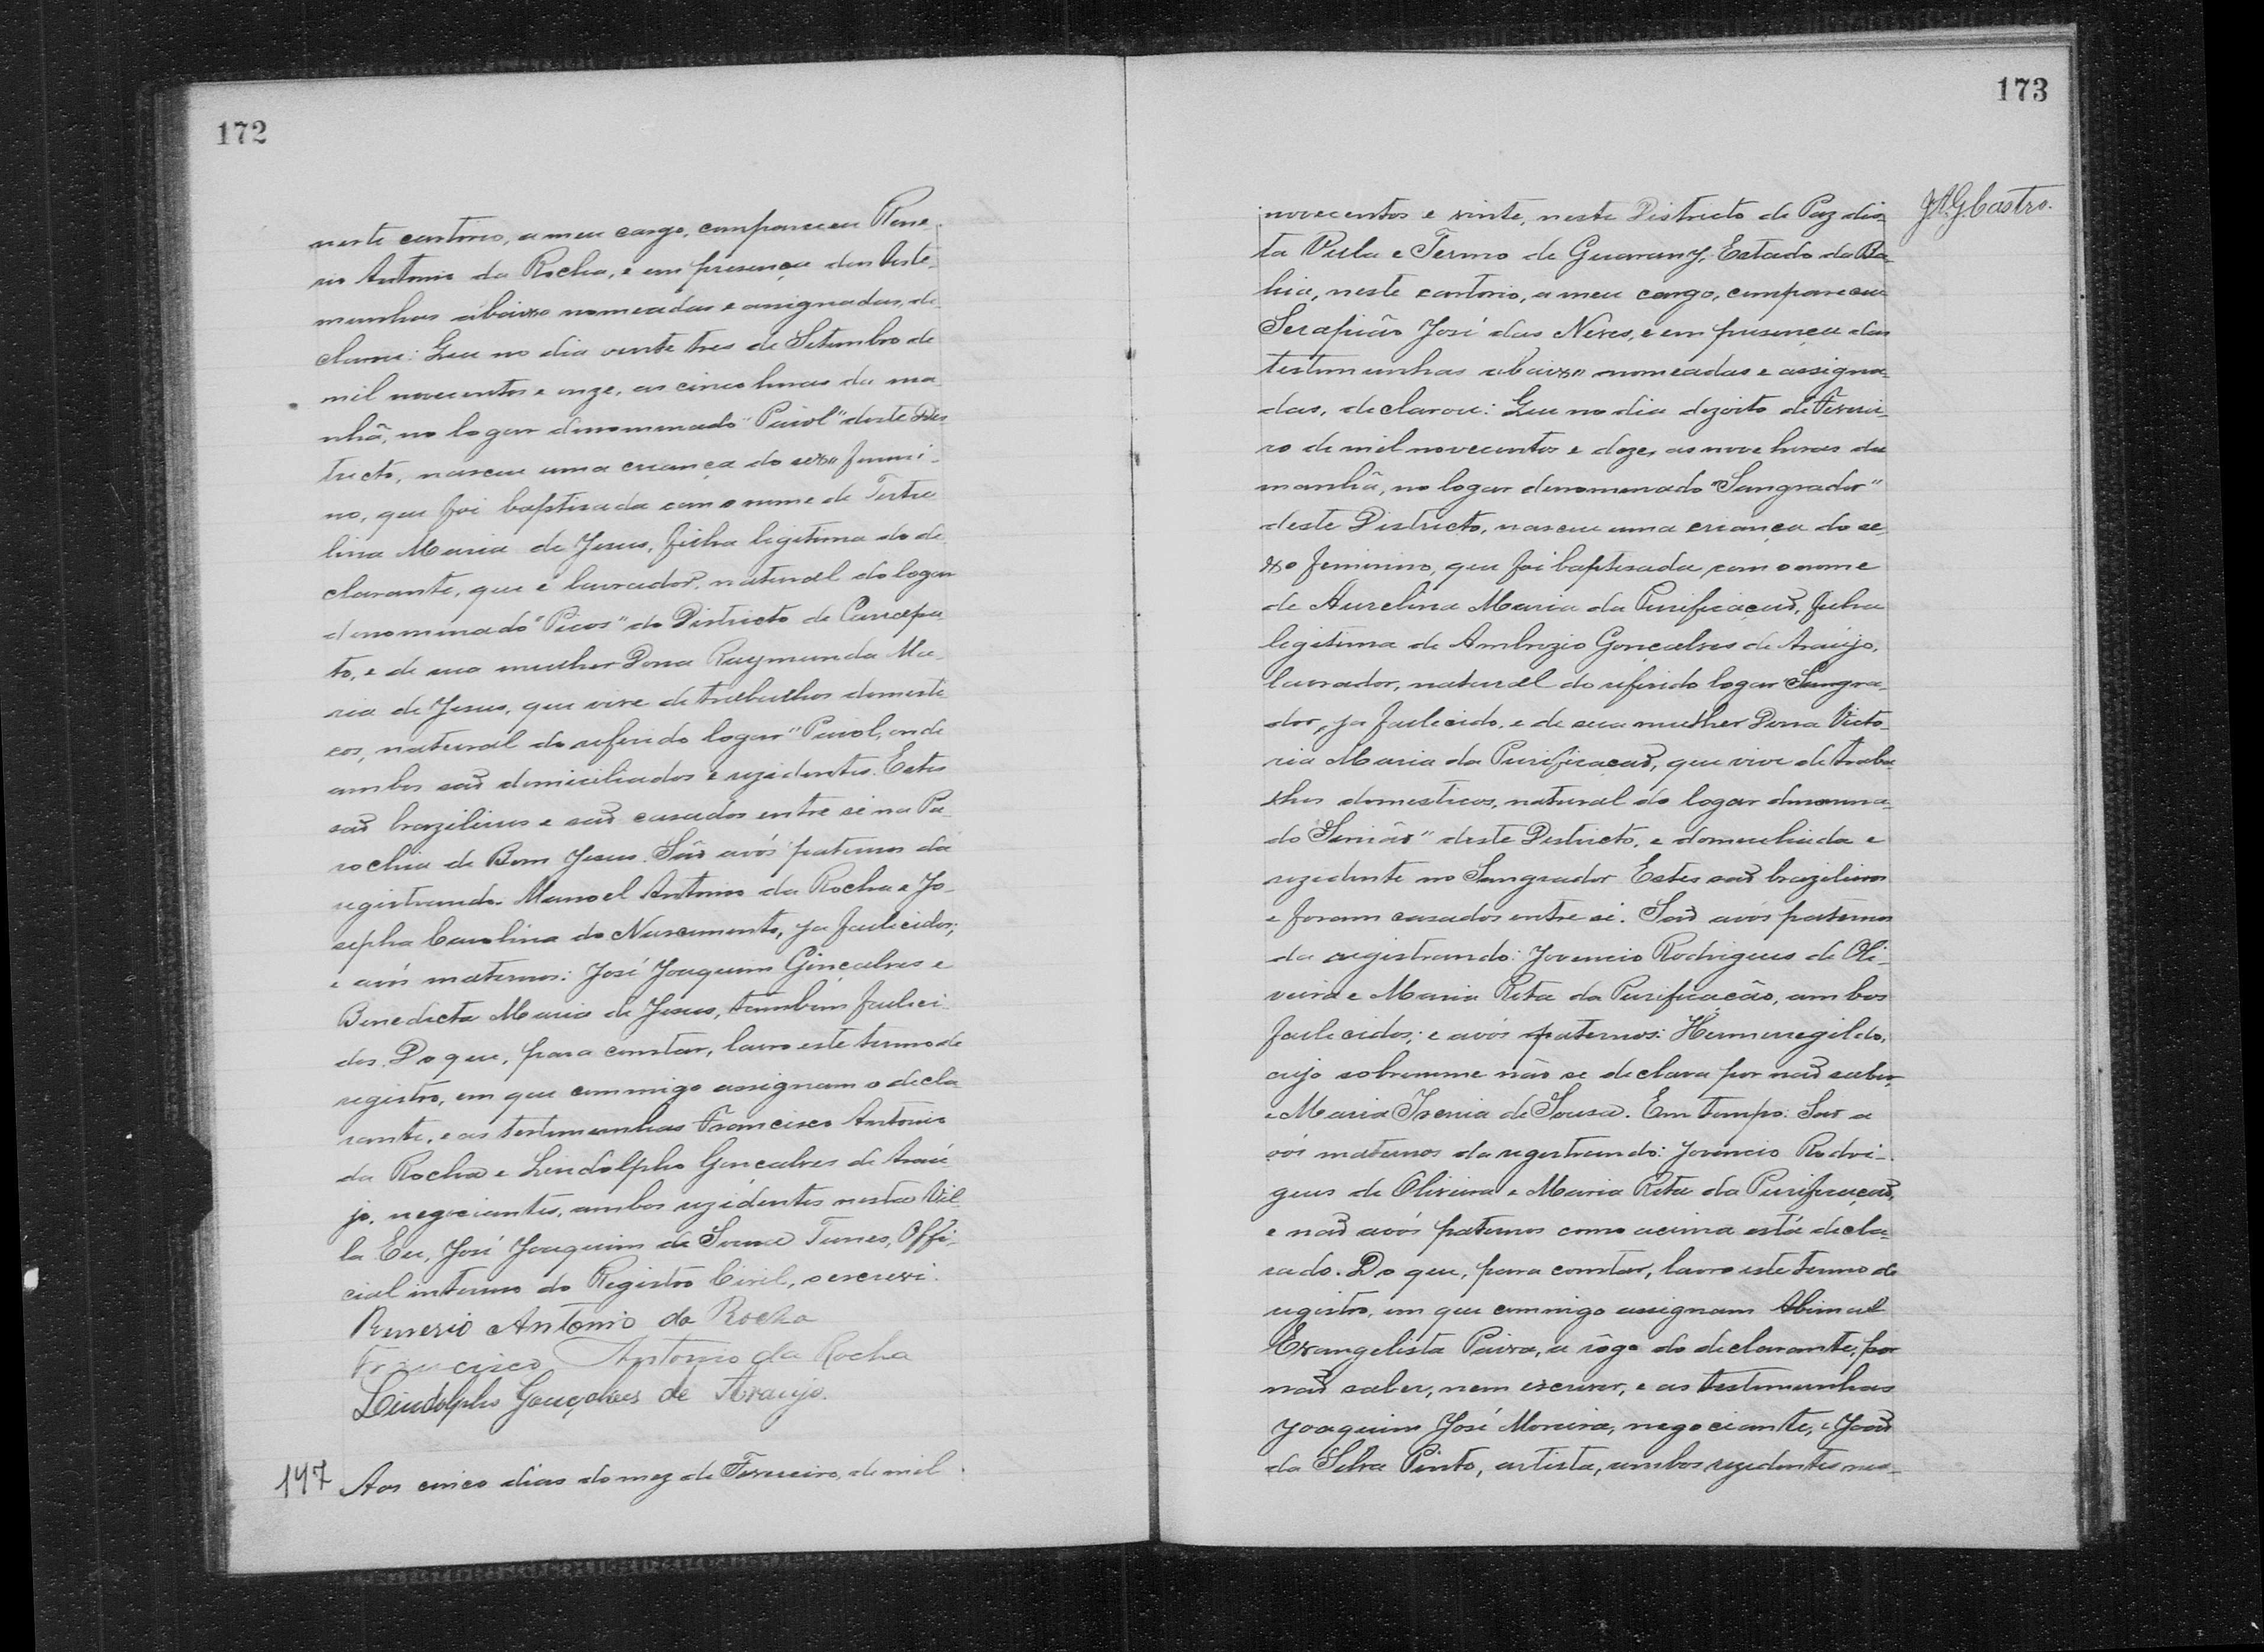 172
neste cartorio, a meu cargo, compareceu Rene-
rio Antonio da Rocha, e em presença das teste-
munhas abaixo nomeadas e assignadas, de-
clarou: Que no dia vinte tres de Setembro de
mil novecentos e onze, as cinco horas da ma-
nhã, no logar denominado "Paiol" deste Dis
tricto, nasceu uma criança do sexo femini-
no, que foi baptisada com o nome de Tertu
lina Maria de Jesus, filha legitima do de-
clarante, que é lavrador, natural do logar
denominado "Picos" do Districto de
to, e de sua mulher Dona Raymunda Ma-
ria de Jesus, que vive de trabalhos domesti
cos, natural do referido logar "Paiol, onde
ambos saõ domiciliados e rezidentes. Estes
saõ brazileiros e saõ casados entre si na Pa-
rochia de Bom Jesus. Saõ avós paternos da
registrando: Manoel Antonio da Rocha e Jo-
sepha Carolina do Nascimento, ja fallecidos;
e avós maternos: José Joaquim Gonçalves e
Benedicta Maria de Jesus, tambem falleci-
dos. Do que, para constar, lavro este termo de
registro, em que commigo assignam o decla
rante, e as testemunhas Francisco Antonio
da Rocha e Lindolpho Gonçalves de Arau-
jo, negociantes, ambos rezidentes nesta Vil-
la Eu, José Joaquim de Souza Tunes, Offi-
cial interino do Registro Civil, o escrevi.
Renerio Antonio da Rocha
Francisco Antonio da Rocha
Lindolpho Gonçalves de Araujo.
147 Aos cinco dias do mez de Fevereiro, de mil
173
J.A.G.Castro.
novecentos e vinte, neste Districto de Paz des-
ta Villa e Termo de Guarany, Estado da Ba-
hia, neste cartorio, a meu cargo, compareceu
Serapião José das Neves, e em presença das
testemunhas abaixo nomeadas e assigna-
das, declarou: Que no dia dezoito de Feverei-
ro de mil novecentos e doze, as nove horas da
manhã, no logar denominado "Sangrador"
deste Districto, nasceu uma criança do se-
xo feminino, que foi baptisada com o nome
de Aurelina Maria da Purificaçaõ, filha
legitima de Ambrozio Gonçalves de Araujo,
lavrador, natural do referido logar "Sangra-
dor, ja fallecido, e de sua mulher Dona Victo-
ria Maria da Purificaçaõ, que vive de traba-
lhos domesticos, natural do logar denomina-
do deste Districto, e domiciliada e
rezidente no Sangrador Estes saõ brazileiros
e foram casados entre si. Saõ avós paternos
da registrando: Jovencio Rodrigues de Oli-
veira e Maria Rita da Purificação, ambos
fallecidos; e avós paternos: Hermenegildo,
cujo sobrenome não se declara por naõ saber,
e Maria Isenia de Sousa. Em tempo: Saõ a
vós maternos da registrando: Jovencio Rodri-
gues de Oliveira e Maria Rita da Purificaçaõ,
e naõ avós paternos como acima está decla-
rado. Do que, para constar, lavro este termo de
registro, em que commigo assignam Abimael
Evangelista Paiva, a rôgo do declarante, por
naõ saber, nem escrever, e as testemunhas
Joaquim José Moreira, negociante, e Joaõ
da Silva Pinto, artista, ambos rezidentes nes-